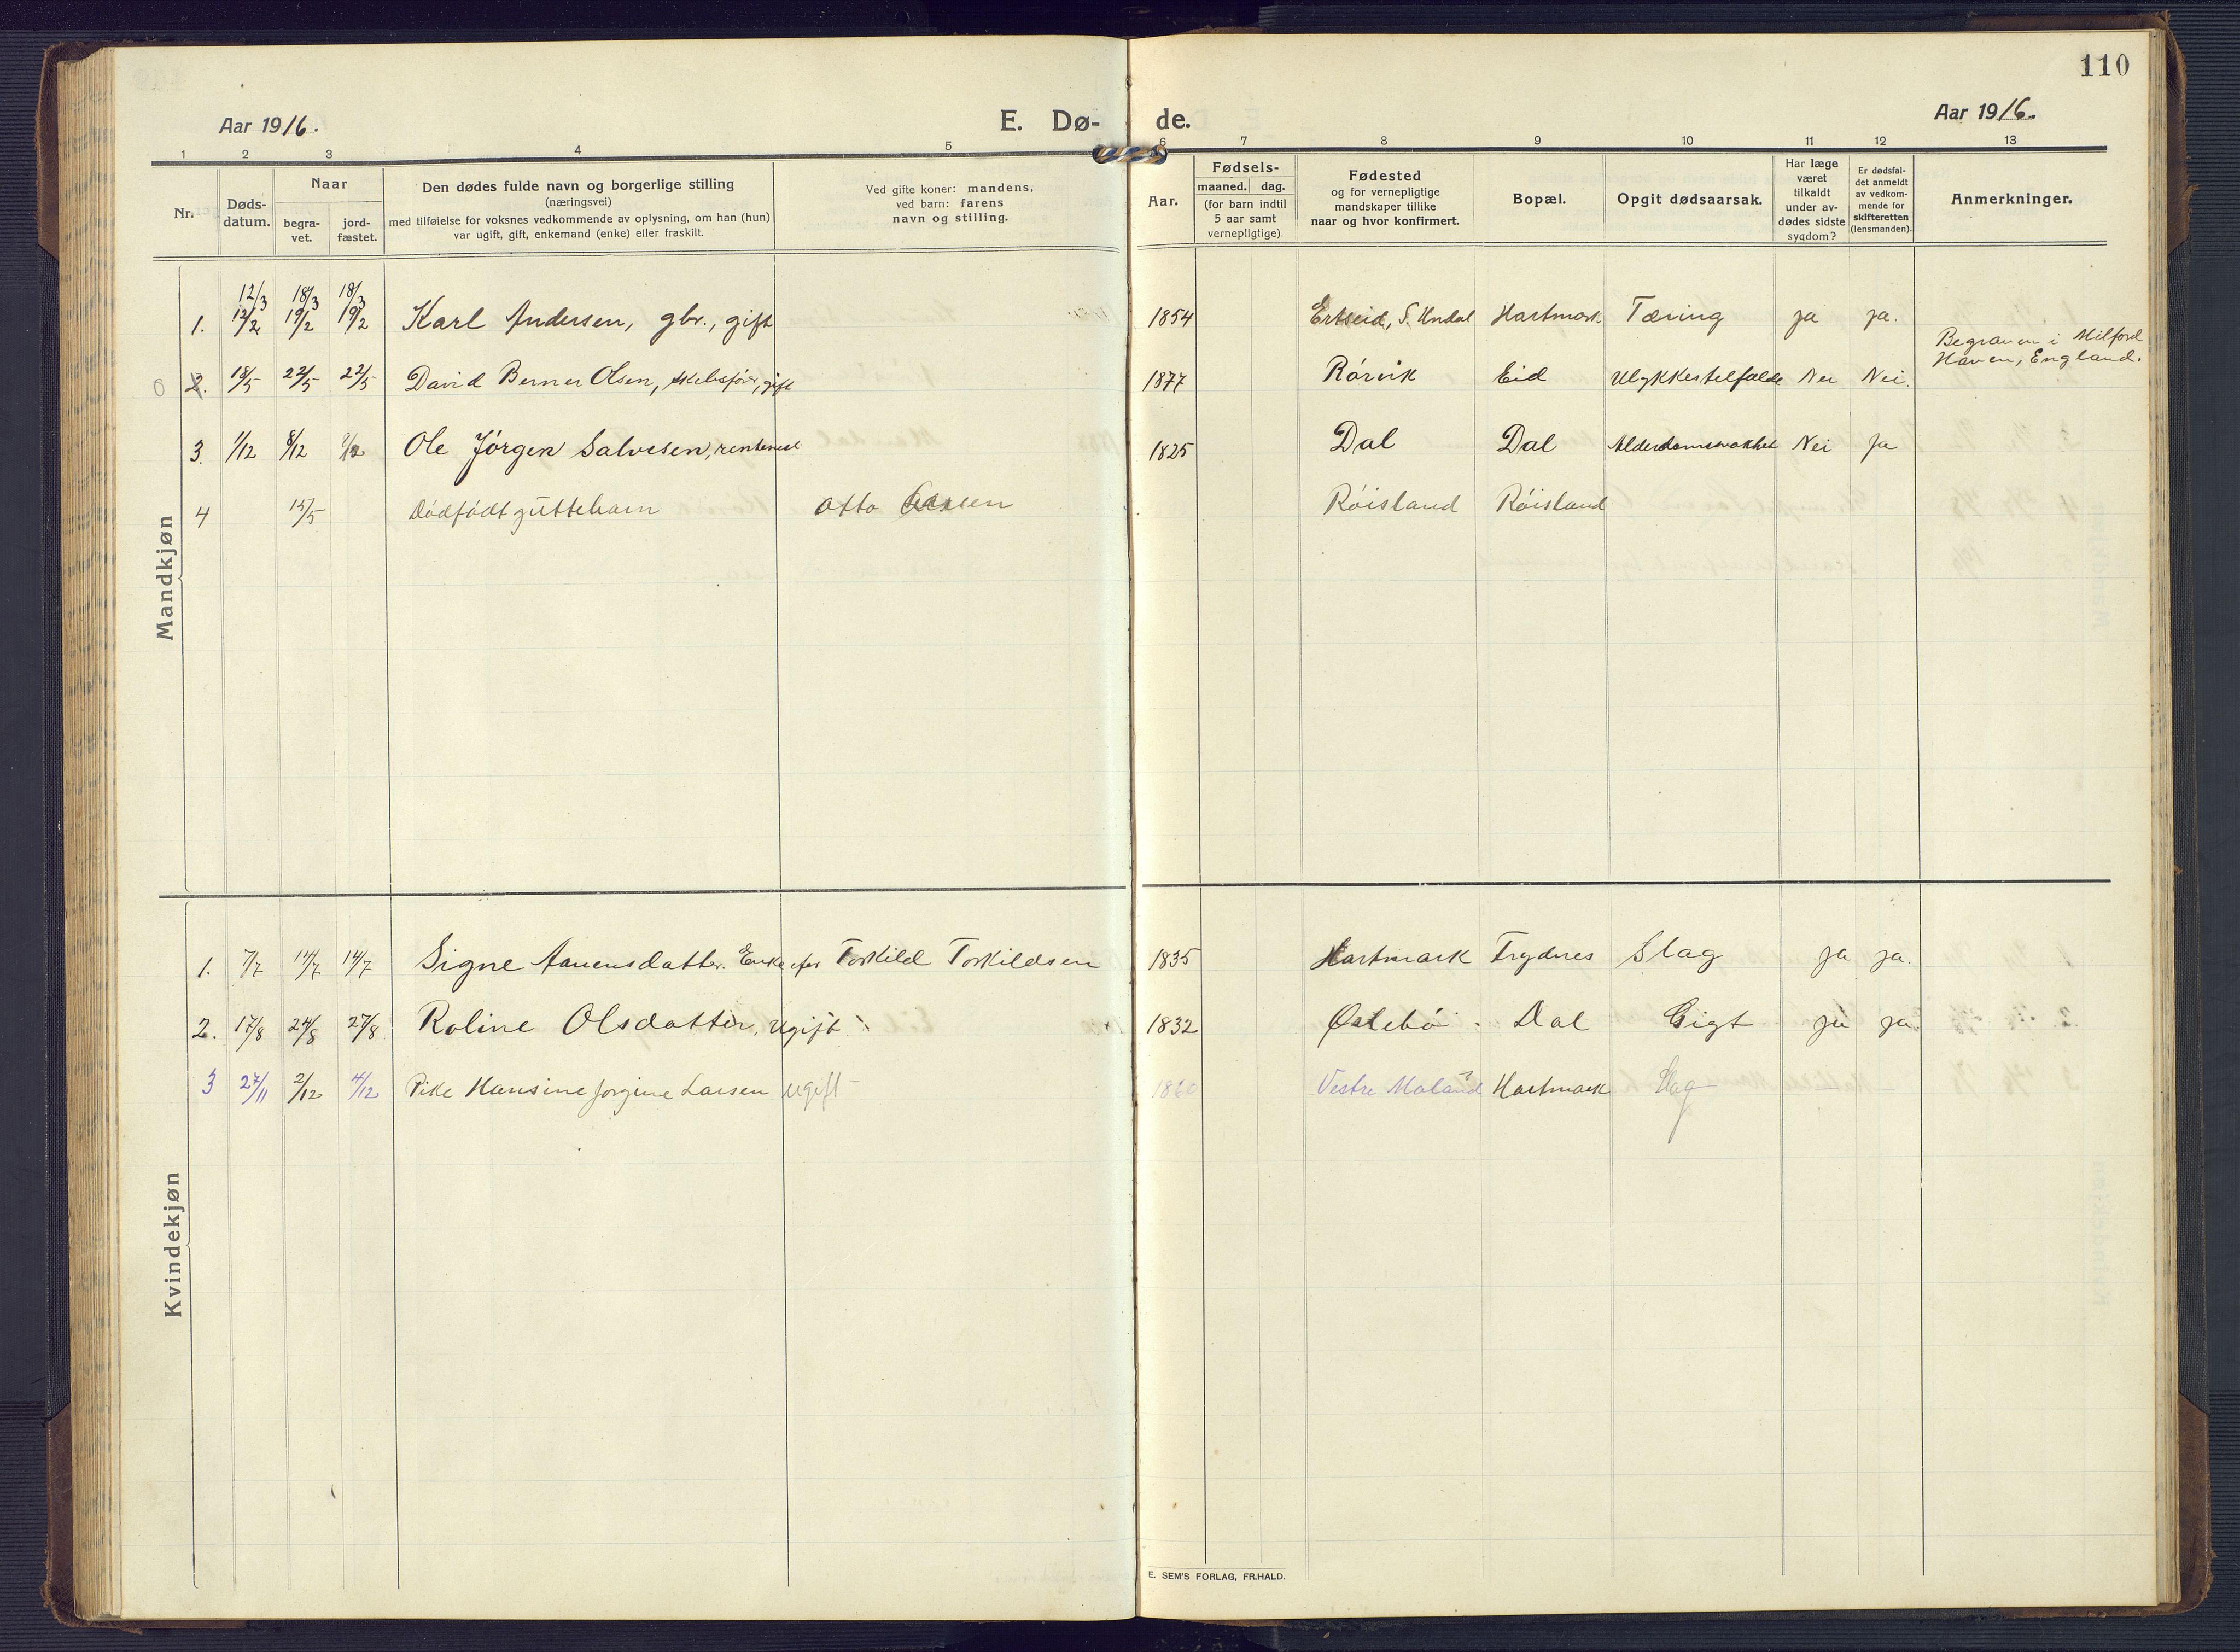 110
Aar 1916. E. Dø- de. Aar 1916.
1 2 3 4 5 6 7 8 9 10 11 12 13
Nr. Døds-datum. Naar begra-vet. jord-fæstet. Den dødes fulde navn og borgerlige stilling (næringsvei) med tilføielse for voksnes vedkommende av oplysning, om han (hun) var ugift, gift, enkemand (enke) eller fraskilt. Ved gifte koner: mandens, ved barn: farens navn og stilling. Aar. Fødsels- maaned. dag. (for barn indtil 5 aar samt vernepligtige). Fødested og for vernepligtige mandskaper tillike naar og hvor konfirmert. Bopæl. Opgit dødsaarsak. Har læge været tilkaldt under av-dødes sidste sygdom? Er dødsfal-det anmeldt av vedkom-mende for skifteretten (lensmanden). Anmerkninger.
Mandkjøn
12/3 18/3 18/3
1. 12/2 19/2 19/2 Karl Andersen, gbr., gift 1854 Erkleid, S. Undal Hartmark Tæring ja ja.
Begraven i Milford
Haven, England.
0 2. 18/5 22/5 22/5 David Berner Olsen, skibsfører, gift 1877 Rørvik Eid Ulykkestelfælde Nei Nei.
3. 1/12 8/12 8/12 Ole Jørgen Salvesen, 1825 Dal Dal Alderdomssvakhet Nei Ja
4 15/5 Dødfødt guttebarn Otto Røisland Røisland
Kvindekjøn
1. 7/7 14/7 14/7 Signe Aanensdatter. Enke efter Torkild Torkildsen 1835 Hartmark Frydnes Slag ja ja.
2. 17/8 24/8 27/8 Roline Olsdatter, ugift 1832 Østebø Dal Gigt ja ja.
3 27/11 2/12 4/12 Pike Hansine Jorgine Larsen ugift – 1860 Vestre Moland? Hartmark Slag —
E. SEM'S FORLAG, FR.HALD.